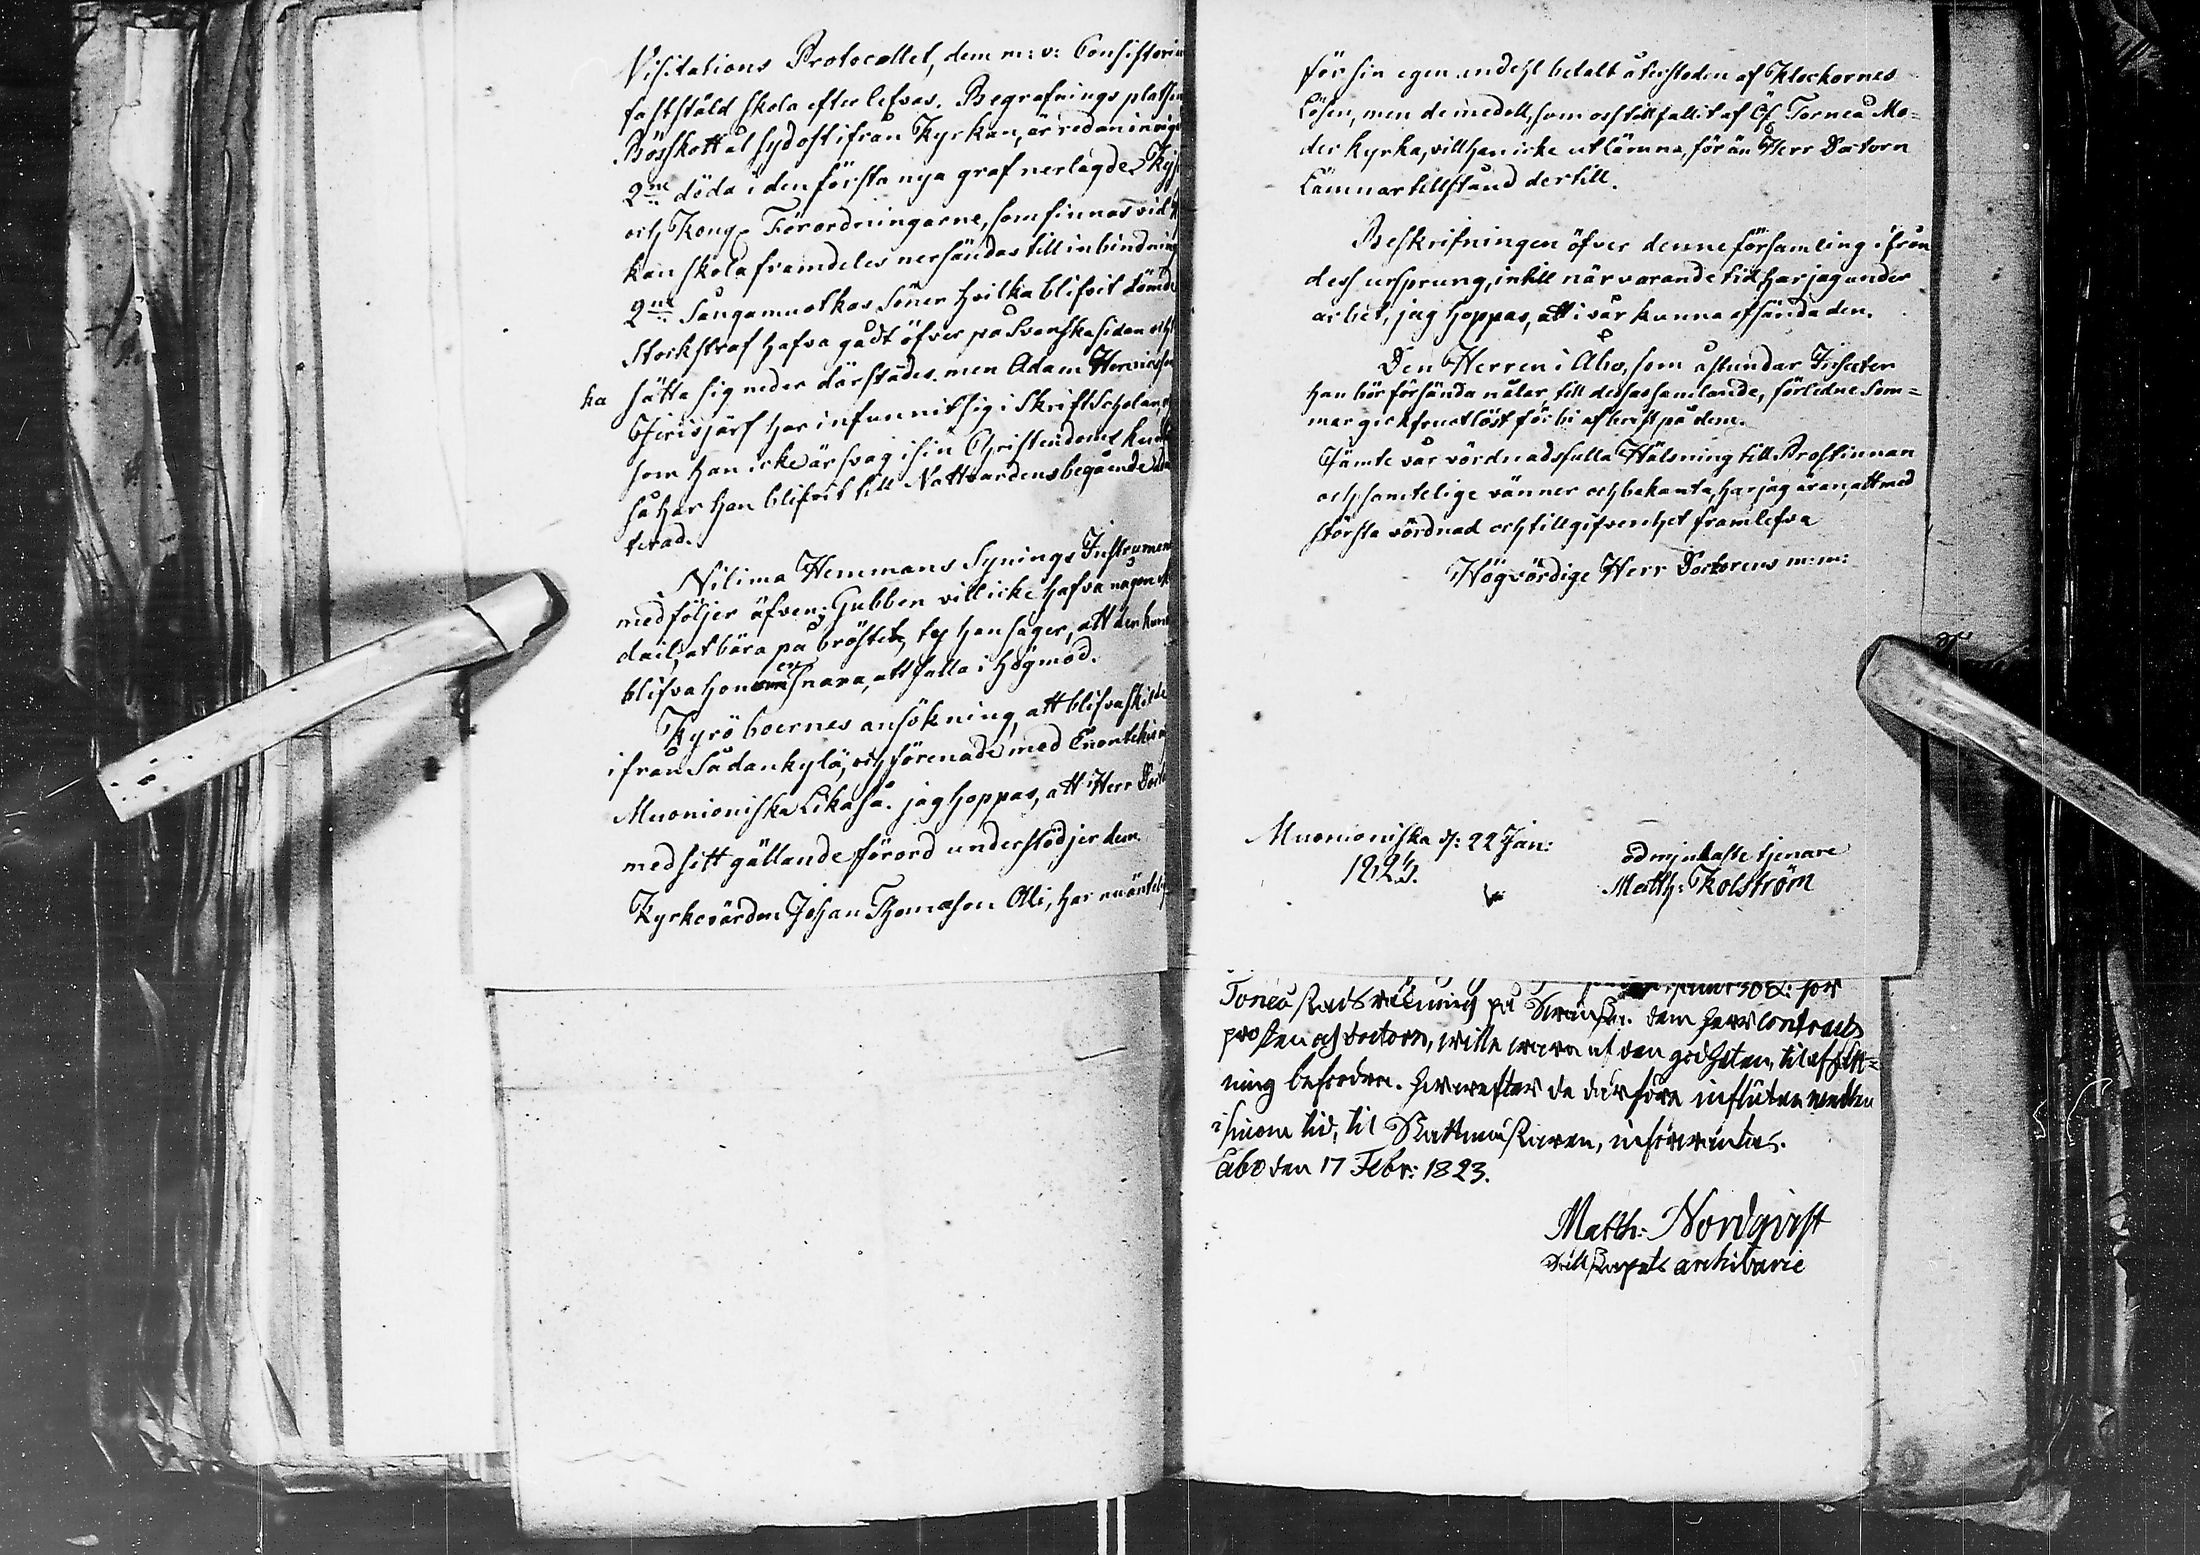 Visitations Protocollet, dem m: v: Consistorium
fastställd skola efterlefvas. Begrafnings platsen
Böss kott åt sydost ifrån Kyrkan, är redan invigd
2ne döda i den första nya graf nerlagde.
och Kong. Förordningarne, som finnas vid
kan skola framdeles nersändas till inbindning
2ne Sångamuotkas Söner hvilka blifvit dömde
Storkstraf hafva gådt öfver på Svenska sidan och
ha sätta sig neder därstädes. men Adam Henriksson
Jerisjärf har infunnit sig i Skrift Scholan,
som han icke är svag i sin Christendoms
så har han blifvit till Nattvardens begående
terad.
Nilima Hemmans Synings Instrument
medföljer äfven; Gubben vill icke hafva någon
dail, at bära på bröstet, ty han säger, att den kunde
blifva honom en snara, att falla i högmod.
Kyrö boernes ansökning, att blifva skilde
ifrån Sådankylä, och förenade med Enontekis
Muonioniska Likaså. jag hoppas, att Herr Doctorn
med sitt gällande förord understödjer dem.
Kyrkovärden Johan Thomasson Oli, har nu
för sin egen andehl betalt återstoden af Klockornes
Lösen, men de medell, som oss tillfallit af Öf. Torneå Mo=
der kyrka, vill han icke utlämna, för än Herr Doctorn
Lämnar tillstånd dertill.
Beskrifningen öfver denne församling ifrån
dess ursprung, intill närvarande tid har jag under
arbet, jag hoppas, att i vår kunna afsända den.
Den Herren i Åbo, som åstundar Insecter
han bör försända nålar, till dessas samlande, förledne Som=
mar gick fruktlöst förbi af brist på dem.
Jämte vår vördnadsfulla Hälsning till Prostinnan
och samtelige vänner och bekanta, har jag äran, att med
största vördnad och tillgifvenhet framlefva
Högvördige Herr Doctorens m: m:
Muonioniska d: 22 Jan:
1823.
ödmjukaste tjenare
Matth: Kolström
Torneå Stads räkning på dem Herr Contracts
prosten och Doctorn, wille wara af den godheten, til afsätt=
ning befordra. Hwarefter de därföre influtne medlen
i sinom tid, til Skattmästaren, införwäntas.
Åbo den 17 Febr: 1823.
Matth: Nordqvist
Sällskapets archivarie